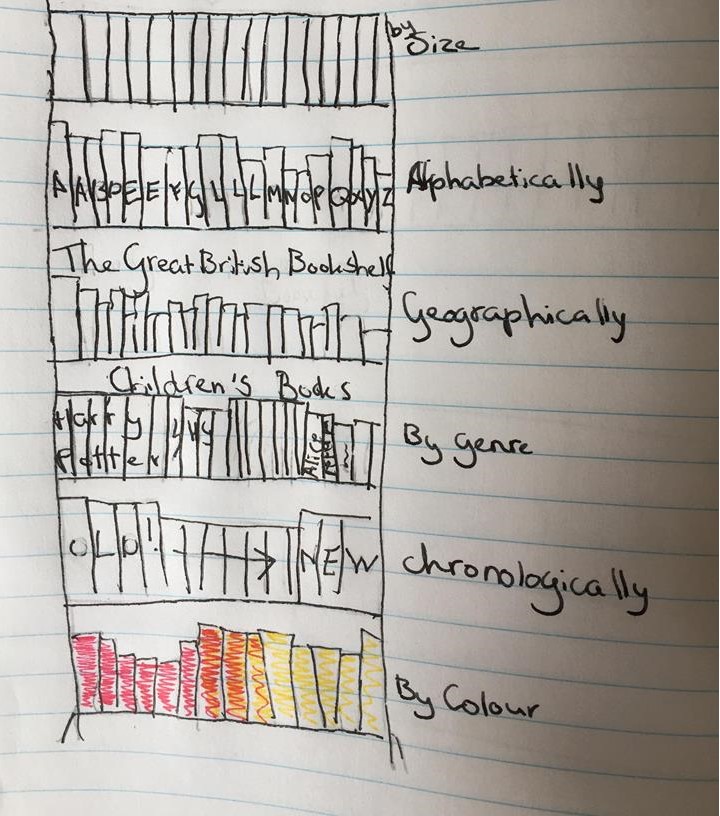 by Size
A A B D E E F G L L L M N O P Q X Y Z
Alphabetically
The Great British Bookshelf
Geographically
Children's Books
Harry
Potter
Alice
By genre
OLD! → NEW
chronologically
By Colour